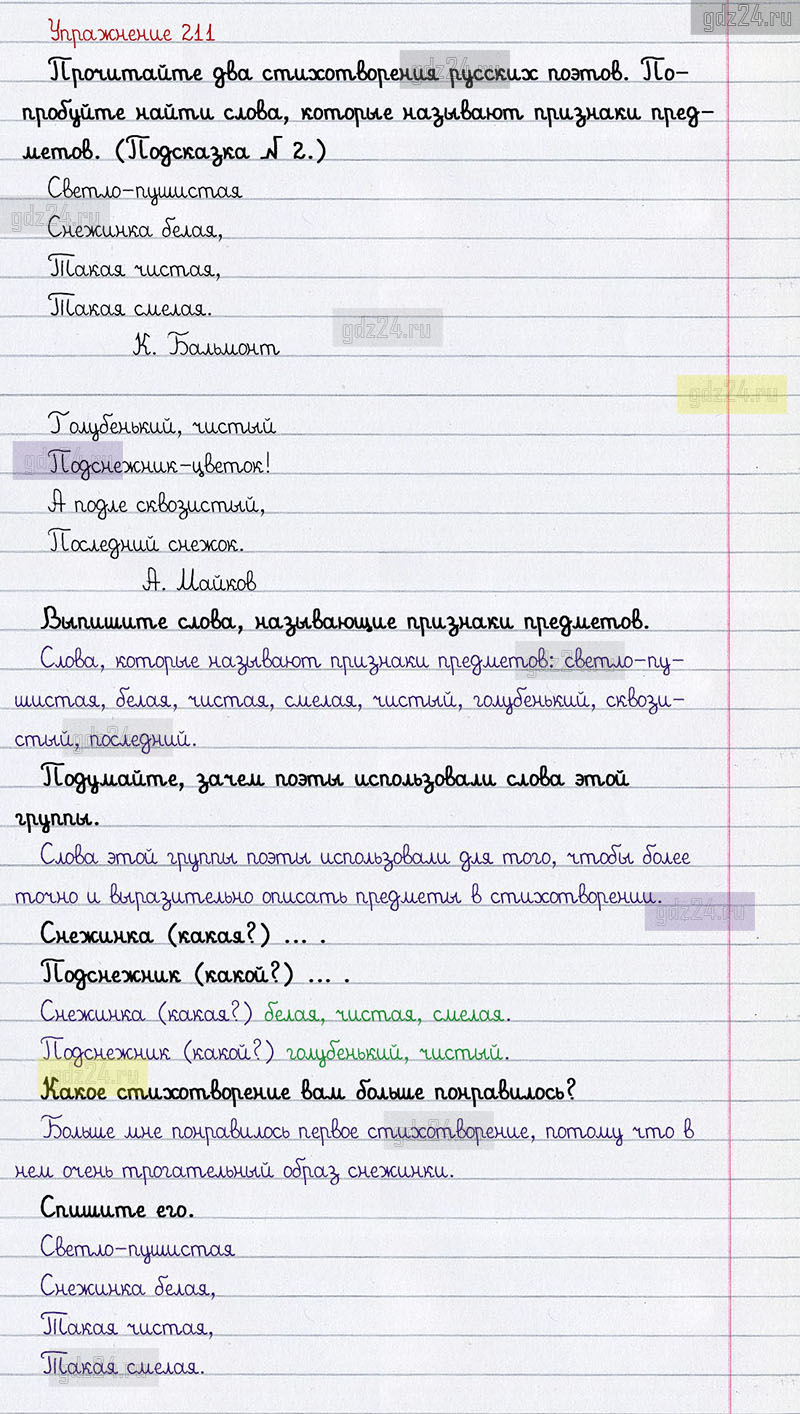 gdz24.ru
Упражнение 211
Прочитайте два стихотворения русских поэтов. По-
gdz24.ru
пробуйте найти слова, которые называют признаки пред-
метов. (Подсказка № 2.)
Светло-пушистая
gdz24.ru
Снежинка белая,
Такая чистая,
Такая смелая.
gdz24.ru
К. Бальмонт
gdz24.ru
Голубенький, чистый
gdz24.ru
Подснежник-цветок!
А подле сквозистый,
Последний снежок.
А. Майков
Выпишите слова, называющие признаки предметов.
Слова, которые называют признаки предметов: светло-пу-
gdz24.ru
шистая, белая, чистая, смелая, чистый, голубенький, сквози-
стый, последний.
gdz24.ru
Подумайте, зачем поэты использовали слова этой
группы.
Слова этой группы поэты использовали для того, чтобы более
точно и выразительно описать предметы в стихотворении.
gdz24.ru
Снежинка (какая?) ... .
Подснежник (какой?) ... .
Снежинка (какая?) белая, чистая, смелая.
Подснежник (какой?) голубенький, чистый.
gdz24.ru
Какое стихотворение вам больше понравилось?
Больше мне понравилось первое стихотворение, потому что в
gdz24.ru
нем очень трогательный образ снежинки.
Спишите его.
Светло-пушистая
Снежинка белая,
Такая чистая,
Такая смелая.
gdz24.ru